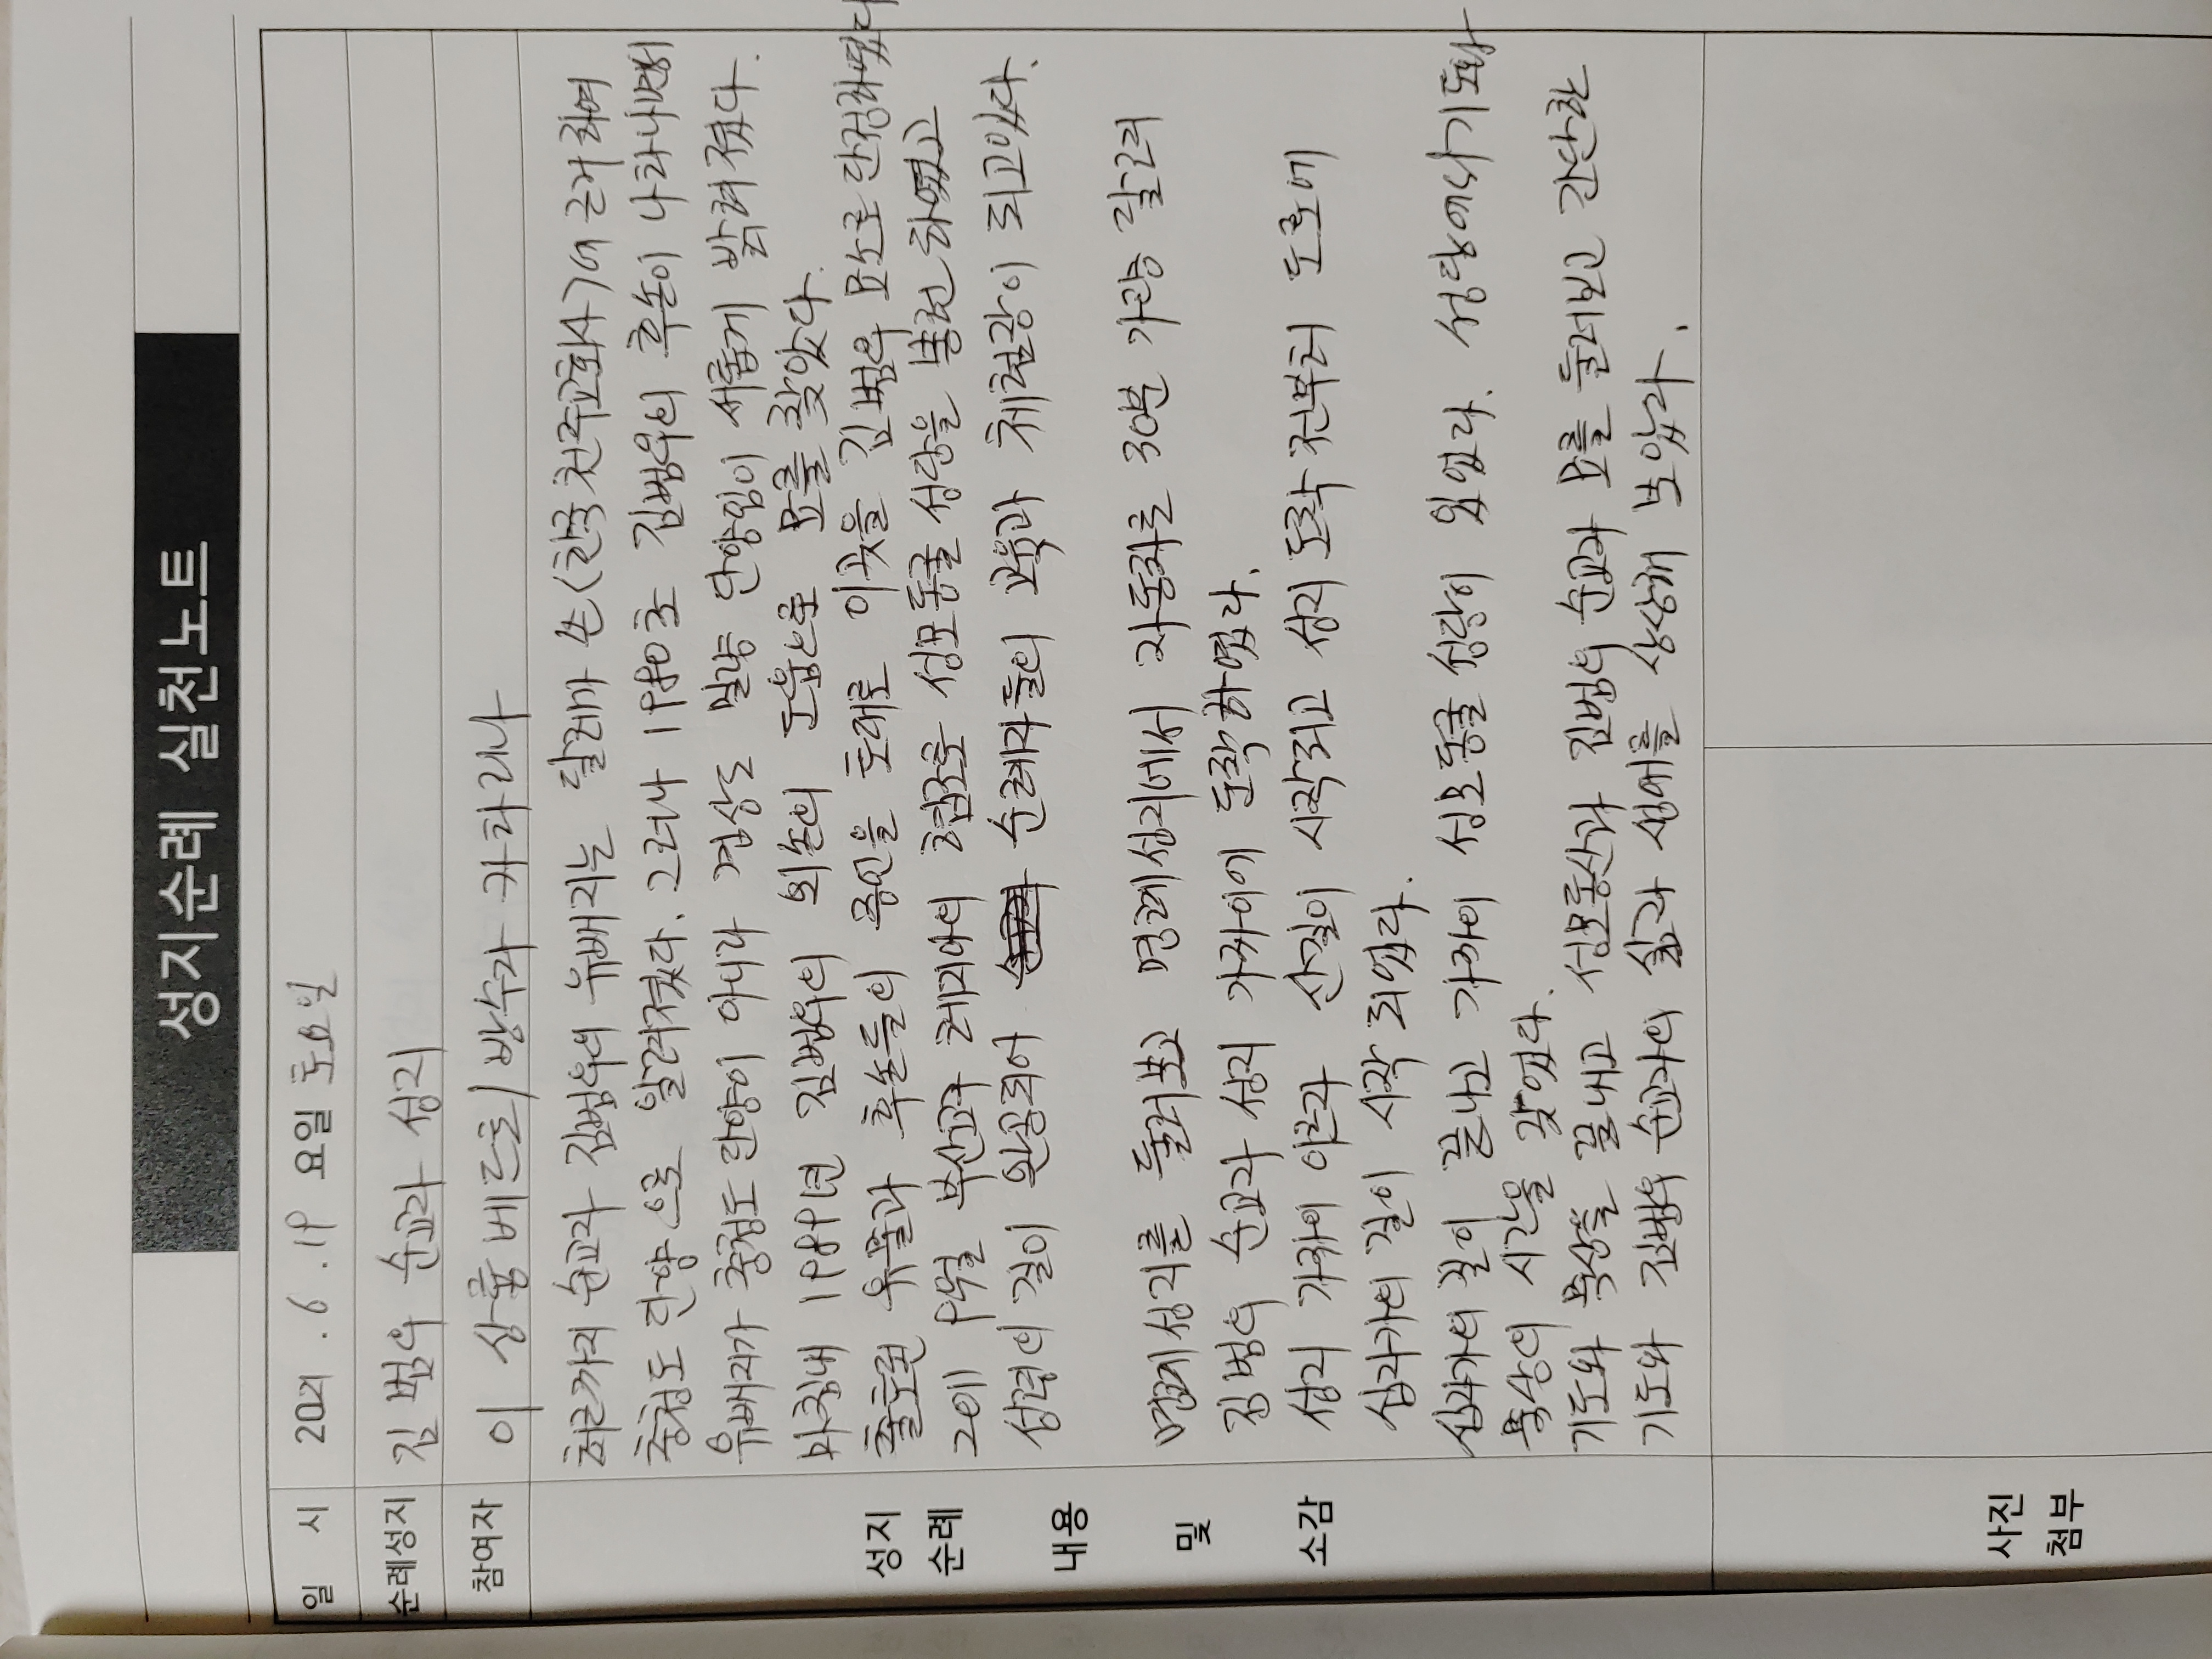 성지순례 실천노트
일 시 2021 . 6 . 19 요일 토요일
순례성지 김범우 순교자 성지
참여자 이 상룡 베드로 / 방수자 카타리나
최근까지 순교자 김범우의 유배지는 달레가 쓴 <한국천주교회사>에 근거하여
충청도 단양으로 알려졌다. 그러나 1980초 김범우의 후손이 나타나면서
유배지가 충청도 단양이 아니라 경상도 밀양 단양임이 새롭게 밝혀졌다.
마침내 1989년 김범우의 외손의 도움으로 묘를 찾았다.
출토된 유물과 후손들의 증언을 토대로 이곳을 김범우 묘소로 단정하였다
2011 9월 부산교구 레지아의 협조로 성모동굴 성당을 봉헌 하였고
성령의 길이 완공되어 순례자들의 교육과 체험장이 되고있다.
명례성지를 둘러보고 명례성지에서 자동차로 30분 가량 달려
김범우 순교자 성지 가까이에 도착하였다.
성지 가까이 이르자 산길이 시작되고 성지 도착 전부터 도로에
십자가의 길이 시작 되었다.
십자가의 길이 끝나고 가까이 성모동굴 성당이 있었다. 성당에서 기도와
묵상의 시간을 갖었다.
기도와 묵상을 끝내고 성모동산과 김범우 순교자 묘를 둘러보고 간단한
기도와 김범우 순교자의 삶과 생애를 상상해 보았다.
성지
순례
내용
및
소감
사진
첨부